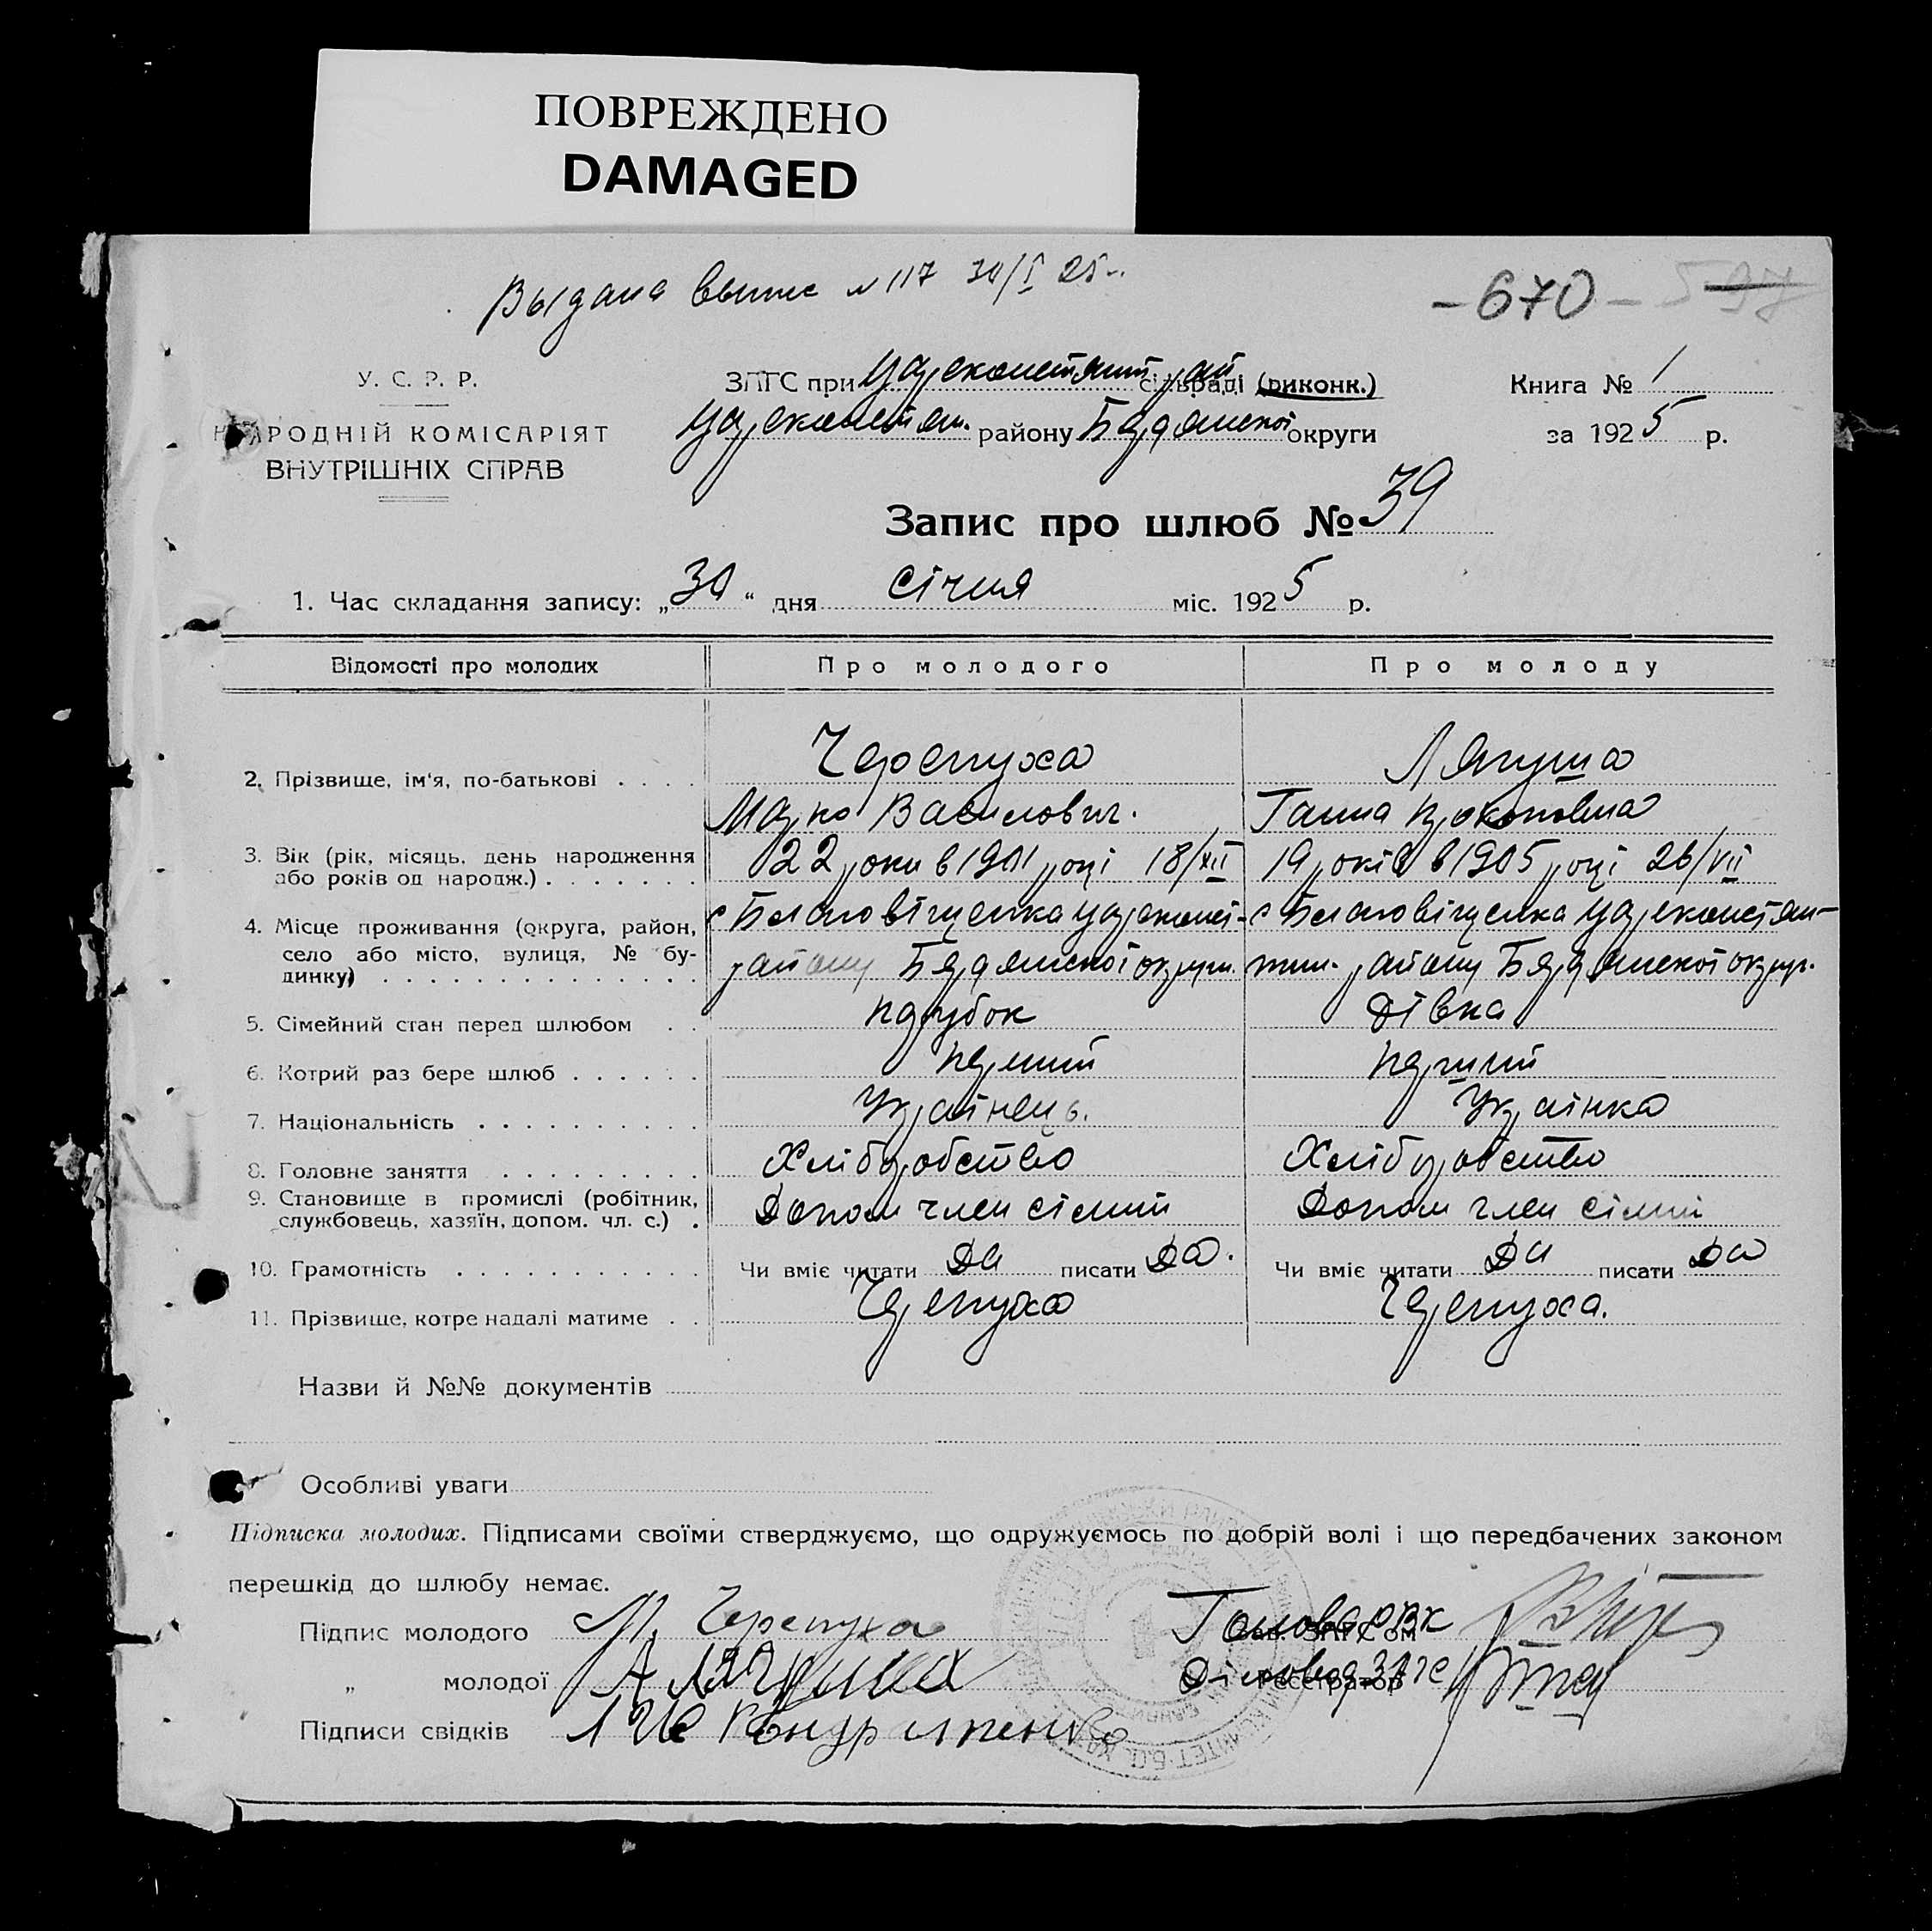 ПОВРЕЖДЕНО
DAMAGED
Выдана выпис №117 30/I 25
-670- 597
У. С. Р. Р.
НАРОДНІЙ КОМІСАРІЯТ
ВНУТРІШНІХ СПРАВ
ЗАГС при Цареконстянт рай сільраді (риконк.)
Цареконстян. району Бердянської округи
Книга № 1
за 1925 р.
Запис про шлюб № 39
1. Час складання запису: „30“ дня січня міс. 1925 р.
Відомості про молодих Про молодого Про молоду
2. Прізвище, ім'я, по-батькові . . . . Черепуха Лягуша
Марко Василович. Ганна Прокоповна
3. Вік (рік, місяць, день народження 22 роки в 1901 році 18/XII 19 років в 1905 році 26/VII
або років од народж.) . . . . . . .
4. Місце проживання (округа, район, с Благовіщенка Цареконст- с Благовіщенка Цареконстян-
село або місто, вулиця, № бу- району Бердянської округи. тин. району Бердянської округ.
динку) . . . . . . . . . . . . . .
5. Сімейний стан перед шлюбом . . парубок дівка
6. Котрий раз бере шлюб . . . . . . перший перший
7. Національність . . . . . . . . . . Українець. Українка
8. Головне заняття . . . . . . . . . Хліборобство Хліборобство
9. Становище в промислі (робітник, Допом член сімиї Допом член сімиї
службовець, хазяїн, допом. чл. с.) .
10. Грамотність . . . . . . . . . . . Чи вміє читати Да писати Да. Чи вміє читати Да писати Да
11. Прізвище, котре надалі матиме . . Черепуха Черепуха.
Назви й №№ документів
Особливі уваги
Підписка молодих. Підписами своїми стверджуємо, що одружуємось по добрій волі і що передбачених законом
перешкід до шлюбу немає.
Підпис молодого М. Черепуха Голова РВК
„ молодої А Лягуша Діловод ЗАГС Реєстратор
Підписи свідків